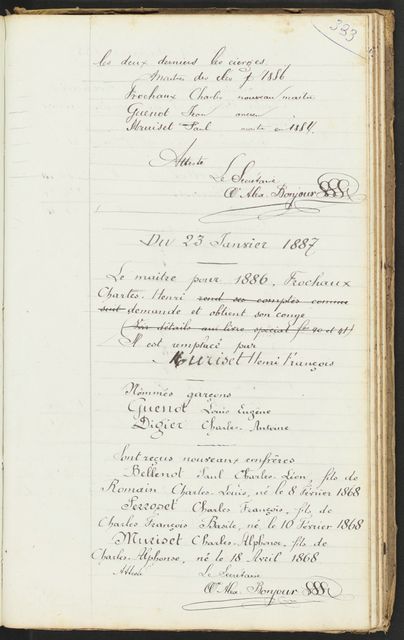 333
les deux derniers les cierges.
Maîtres des clés 1886
Frochaux Charles nouveau maître
Guenot Jean ancien
Muriset Paul en 1884.
Atteste
Le Secrétaire
Alex. Bonjour
Du 23 Janvier 1887
Le maître pour 1886, Frochaux
Charles-Henri rend ses comptes comme
suit demande et obtient son congé
(Les détails au livre spécial fo 20 et 21)
Il est remplacé par
Muriset Henri François
Nommés garçons
Guenot Louis Eugène
Digier Charles-Antoine
Sont reçus nouveaux confrères
Bellenot Paul Charles Léon, fils de
Romain Charles-Louis, né le 8 Février 1868
Perroset Charles François, fils de
Charles François Basile, né le 10 Février 1868
Muriset Charles-Alphonse, fils de
Charles-Alphonse, né le 18 Avril 1868
Atteste Le Secrétaire
Alex. Bonjour